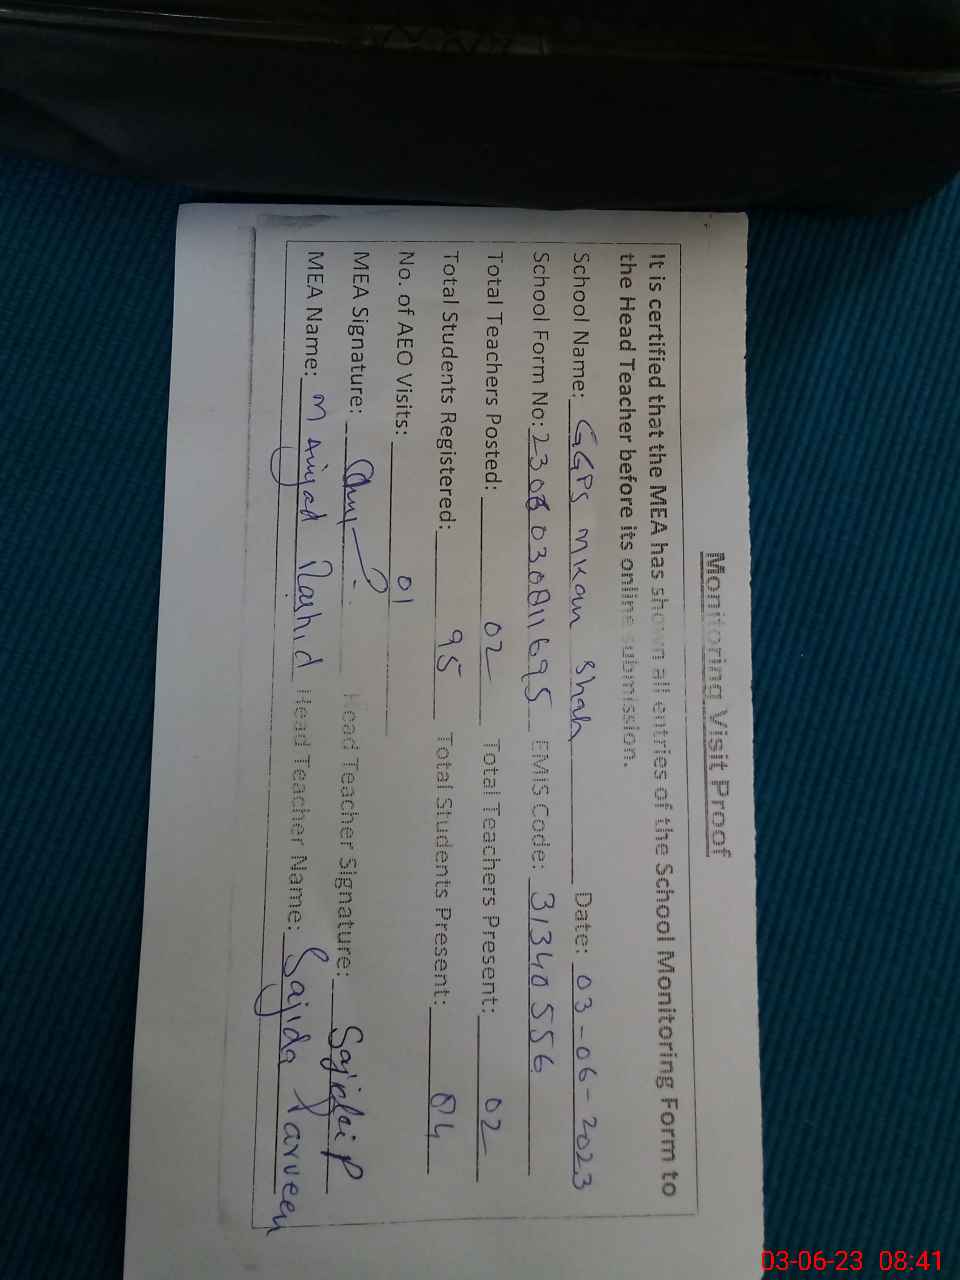 Monitoring Visit Proof
It is certified that the MEA has shown all entries of the School Monitoring Form to
the Head Teacher before its online submission.
School Name: GGPS Mkan Shah Date: 03-06-2023
School Form No: 2306030811695 EMIS Code: 31340556
Total Teachers Posted: 02 Total Teachers Present: 02
Total Students Registered: 95 Total Students Present: 84
No. of AEO Visits: 01
MEA Signature: Head Teacher Signature: Sajida P
MEA Name: M Amjad Rashid Head Teacher Name: Sajida Parveen
03-06-23 08:41